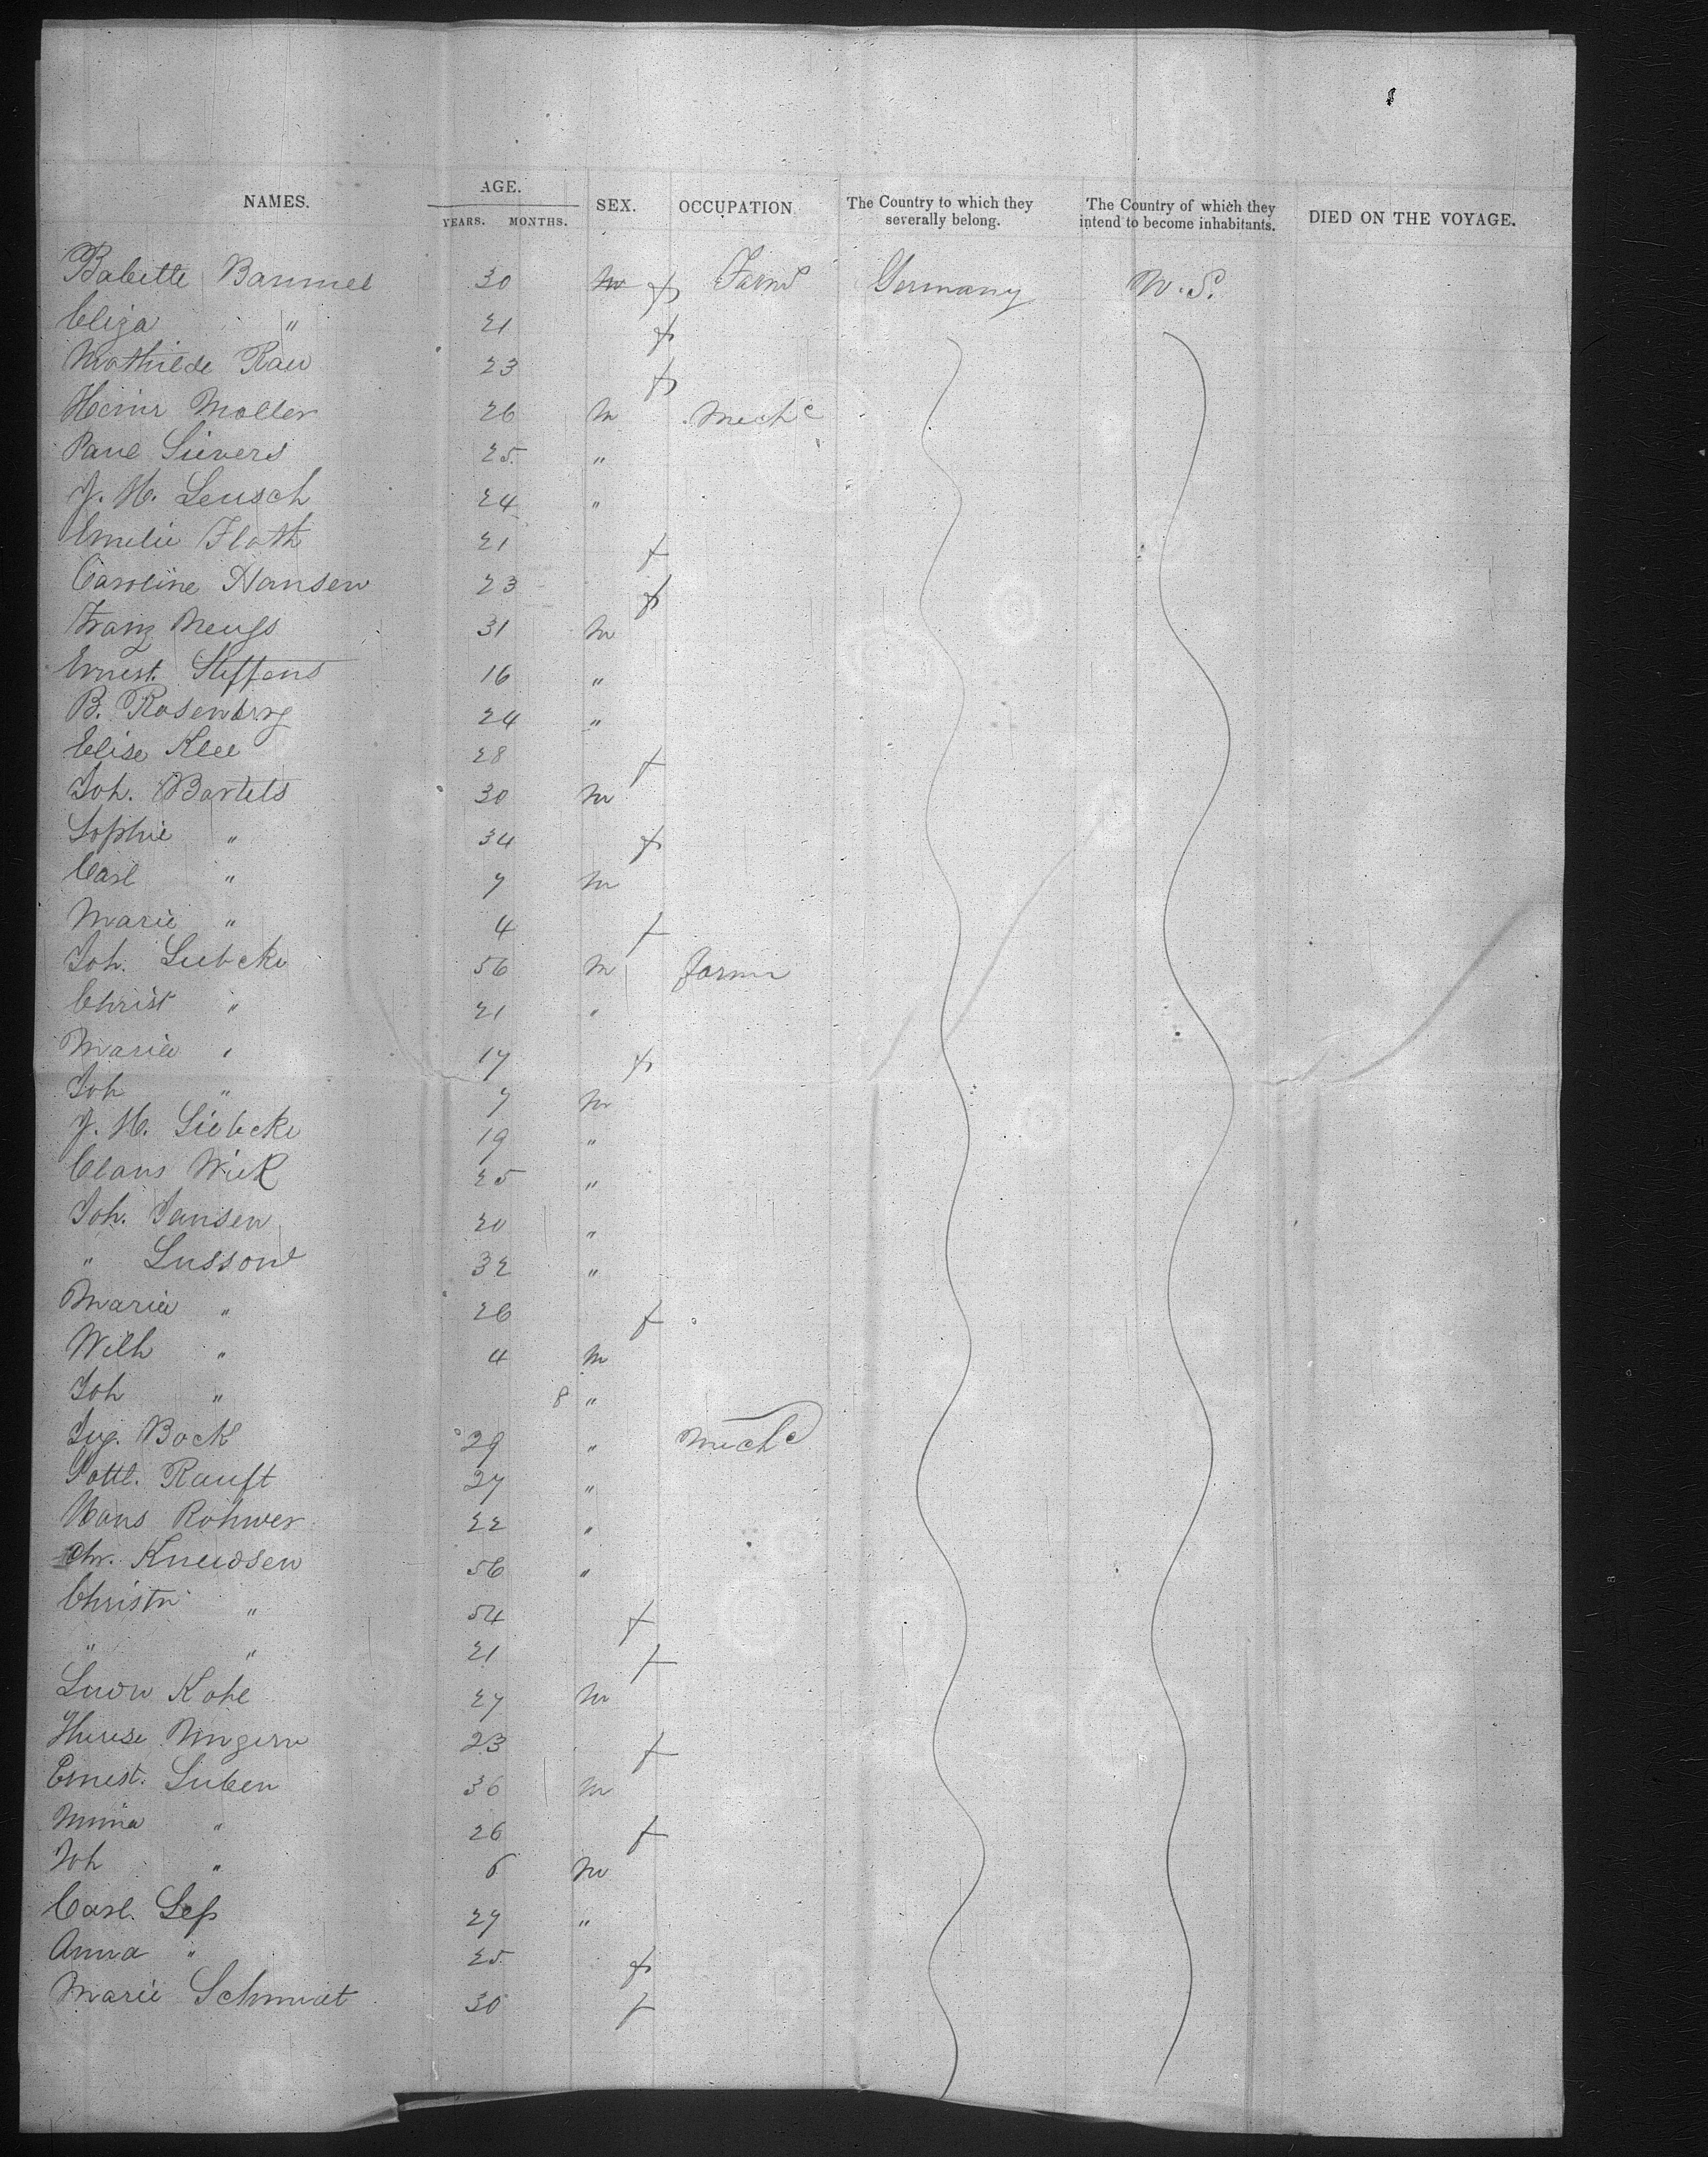 NAMES. AGE. SEX. OCCUPATION The Country to which they severally belong. The Country of which they intend to become inhabitants. DIED ON THE VOYAGE.
YEARS. MONTHS.
Babette Bammel 30 m f Farmr Germany U.S.
Eliza " 21 f
Mathilde Rau 23 f
Heinr Moller 26 m Mechc
Paul Sievers 25 "
J. H. Leusch 24 "
Emelie Floth 21 f
Caroline Hansen 23 f
Franz 31 m
Ernest. Steffens 16 "
B. Rosenbrg 24 "
Elise Klee 28 f
Joh. Bartels 30 m
Sophie " 34 f
Carl " 7 m
Marie " 4 f
Joh. Luebcke 56 m farmr
Christ " 21 "
Maria " 17 f
Joh " 7 m
J. H. Liebcke 19 "
Claus Wiek 25 "
Joh. Jansen 20 "
" Lussow 32 "
Maria " 26 f
Wilh " 4 m
Joh " 8 "
Bock 29 " mechc
Gottl. Ranft 27 "
Hans Rohwer 22 "
Chr. Knudsen 56 "
Christn " 54 f
" " 21 f
Ludw Kohl 27 m
Therese 23 f
Ernest. Luben 36 m
Minna " 26 f
Joh " 6 m
Carl. Less 27 "
Anna " 25 f
Marie Schmidt 30 f